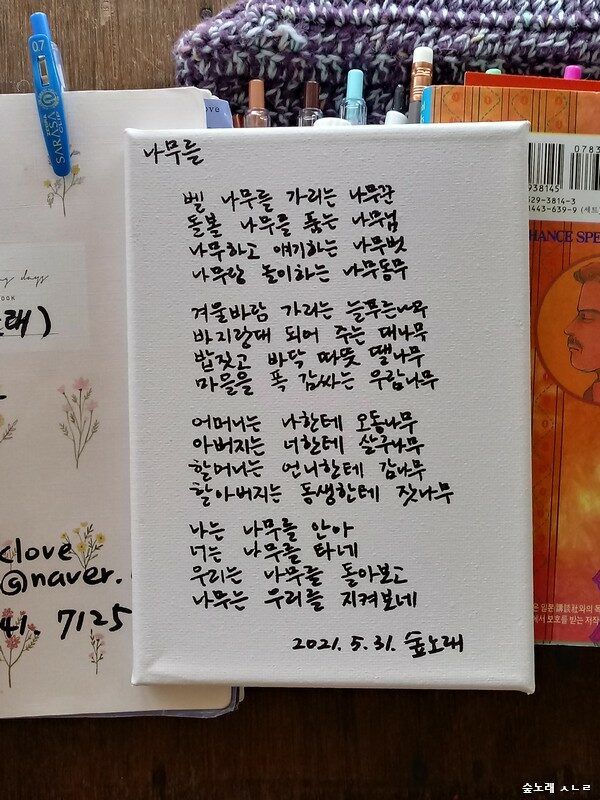 나무를
벨 나무를 가리는 나무꾼
돌볼 나무를 품는 나무님
나무하고 얘기하는 나무벗
나무랑 놀이하는 나무동무
겨울바람 가리는 늘푸른나무
바지랑대 되어 주는 대나무
밥짓고 바닥 따뜻 땔나무
마을을 폭 감싸는 우람나무
어머니는 나한테 오동나무
아버지는 너한테 살구나무
할머니는 언니한테 감나무
할아버지는 동생한테 잣나무
나는 나무를 안아
너는 나무를 타네
우리는 나무를 돌아보고
나무는 우리를 지켜보네
2021. 5. 31. 숲노래
0.7
SARASA
CLIP
ove
days
OOK
래)
clove
@naver.
41. 7125
0783
938145
29-3814-3
443-639-9 (세트)
HANCE SPE
은 일본 講談社와의 독
에서 보호를 받는 저작
숲노래 ㅅㄴㄹ